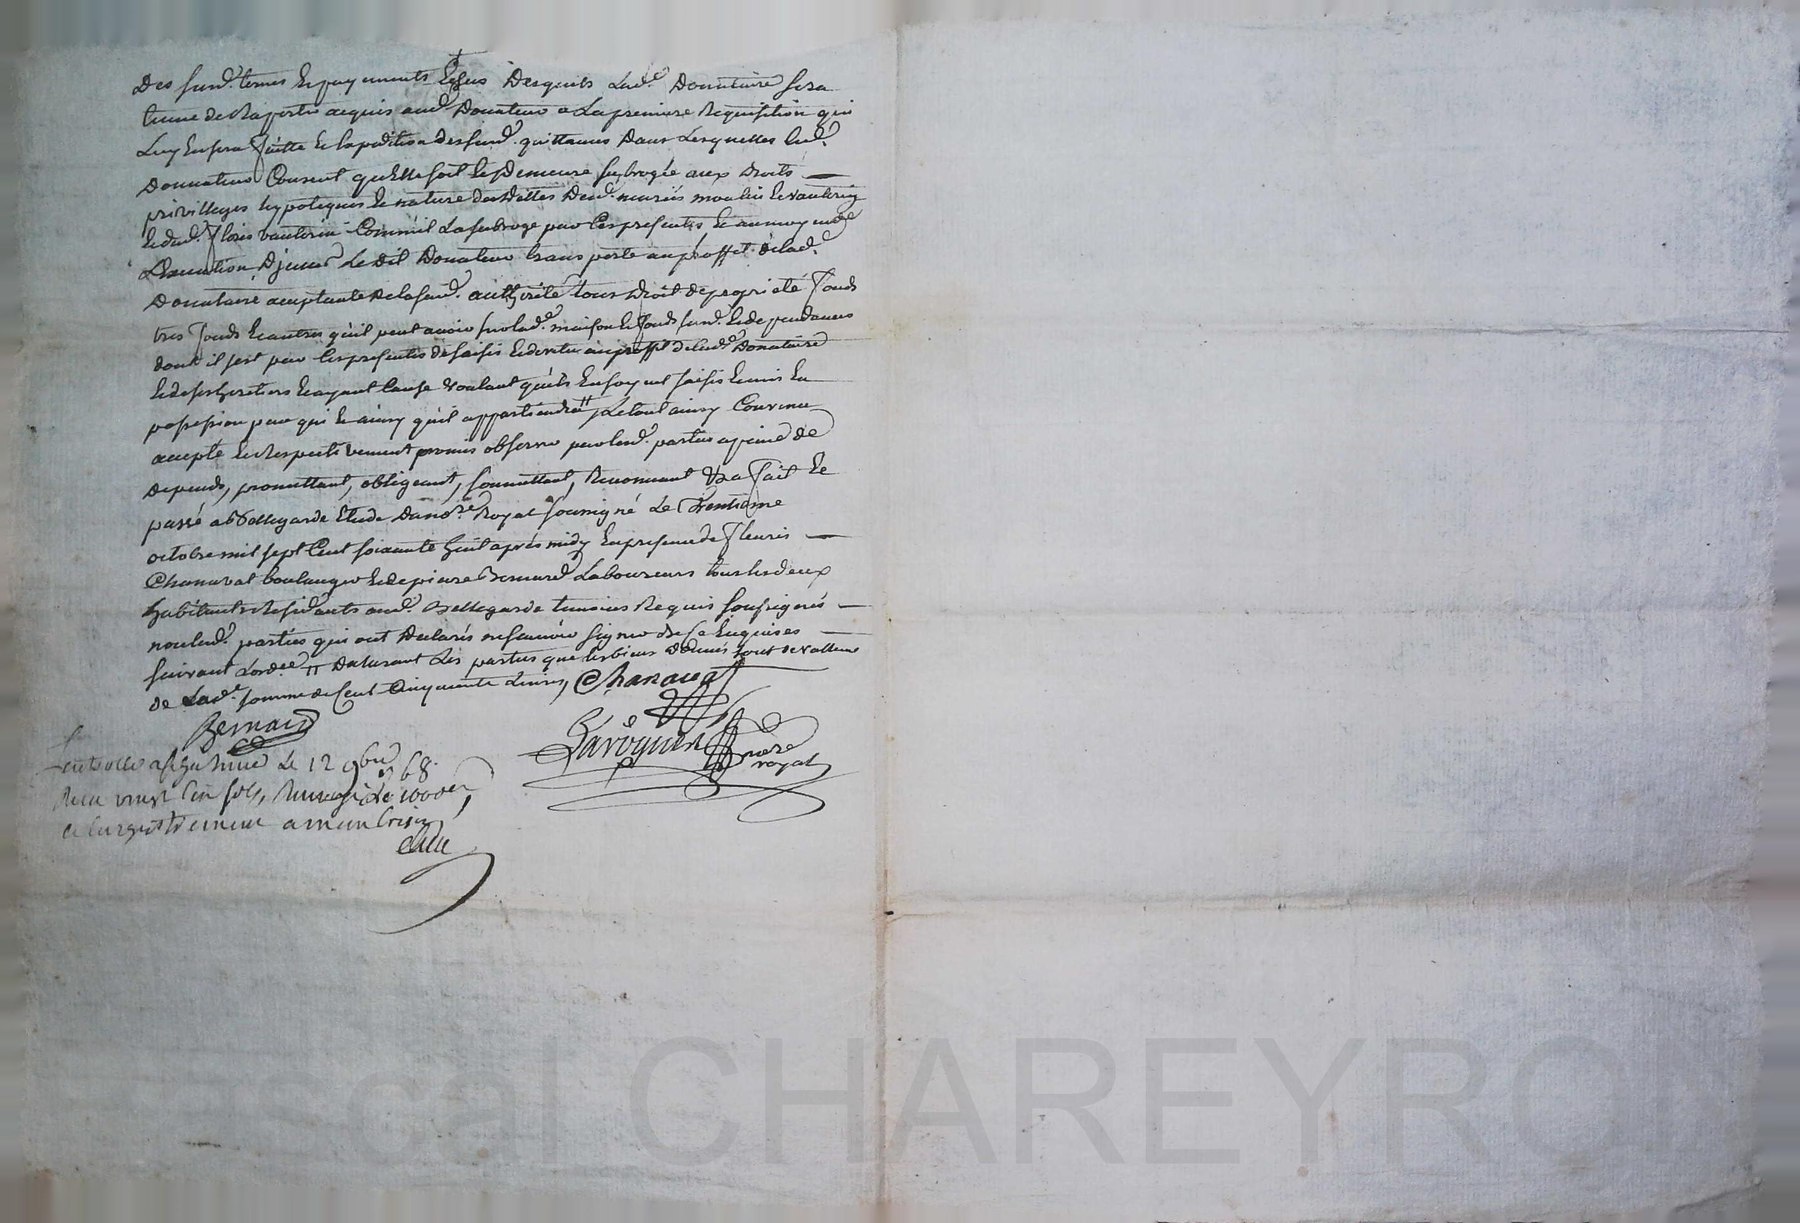 Des susd. termes et payements et sus Desquels Lad.e Donnataire sera
tenue de Raporter acquis aud. Donnateur a La premiere Requisition qui
Luy En sera faitte Et Expedition desd. quittances Dans Lesquelles led.
Donnateur Consent qu'Elle soit Et Demeure subrogée aux droits
privilleges hypoteques Et nature des Dettes Desd. mariés moulin Et vauterin
Et dud. fleris vauterin Comme il La subroge par Ces presentes Et au moyen de
L'Exécution D'jcelles Le Dit Donnateur transporte au proffit de lad.
Donnataire acceptante de lasusd. authorité tous droit de proprieté fonds
tres fonds Et autres qu'il peut avoir sur lad.e maison Et fonds susd. Et dependances
dont il s'est par Ces presentes dessaisis Et devetu au proffit de lad.e Donnataire
Et de ses heritiers Et ayant Cause voulant qu'ils En soyent saisis Et mis En
possession par qui Et ainsy qu'il appartiendra Et tout ainsy Convenu
accepté Et Respectivement promis observer par lesd. parties a peine de
depends, promettant, obligeant, soumettant, Renonceant &a fait Et
passé a Bellegarde Etude Du no.re Royal soussigné Le Trentieme
octobre mil sept Cent soixante huit après midy En presence de fleuris
Chanavat boulanger Et de pierre Bernard Laboureurs tous les deux
habitants Residants aud. Bellegarde temoins Requis soussignés
non lesd. parties qui ont Declarés ne scavoir signer de Ce Enquises
suivant L'ord.ce Declarant Les parties que les biens Donnés sont de valleur
de Lad.e somme de Cent Cinquante Livres, Chanavat
Bernard
Garognon nore
royal
Controllé a st galmier Le 12 9bre 68.
Recu vingt six sols,
a montbrison